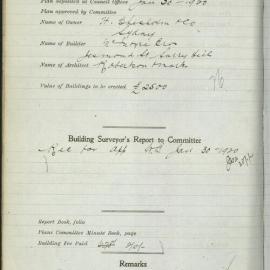 Plan deposited at Council Offices Jan 30 - 1920
Plan approved by Committee
Name of Owner H. Chisholm & Co
Sydney
Name of Builder
St, Surry Hill
Name of Architect Robertson Marks
Value of Buildings to be erected £2500
Building Surveyor's Report to Committee
Rec for App Jan 30 - 1920
Report Book, folio
Plans Committee Minute Book, page
Building Fee Paid
Remarks